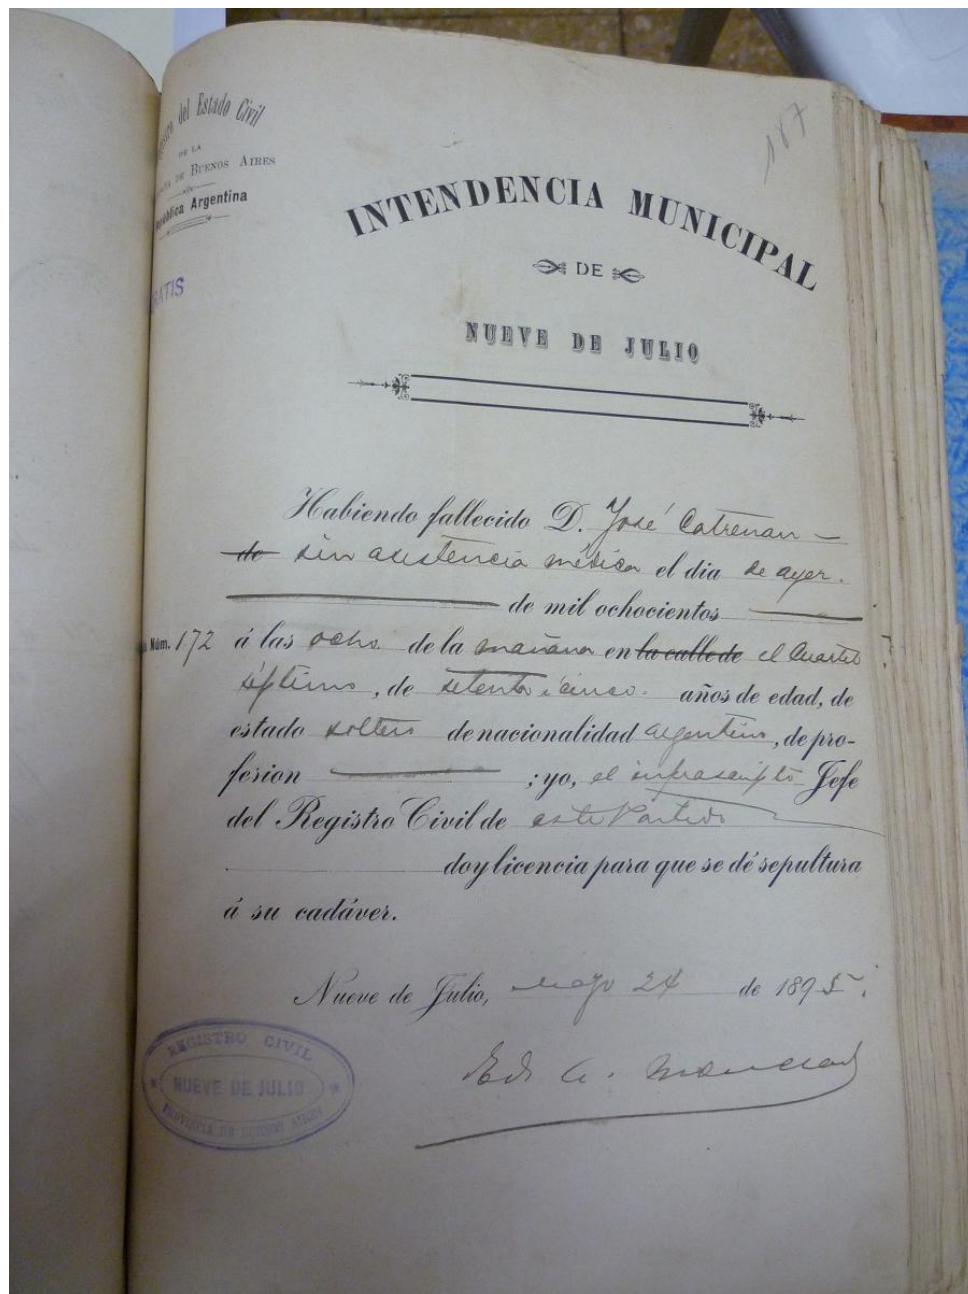 187
del Estado Civil
DE LA
DE BUENOS AIRES
República Argentina
GRATIS
INTENDENCIA MUNICIPAL
DE
NUEVE DE JULIO
Habiendo fallecido D. José Catrenan –
de sin asistencia médica el dia de ayer.
de mil ochocientos
Núm. 172 á las ocho de la mañana en la calle de el Cuartel
séptimo, de setenta i cinco. años de edad, de
estado soltero de nacionalidad argentino, de pro-
fesion ; yo, el infrascripto Jefe
del Registro Civil de este Partido
doy licencia para que se dé sepultura
á su cadáver.
Nueve de Julio, Mayo 24 de 1895.
REGISTRO CIVIL
NUEVE DE JULIO
PROVINCIA DE BUENOS AIRES